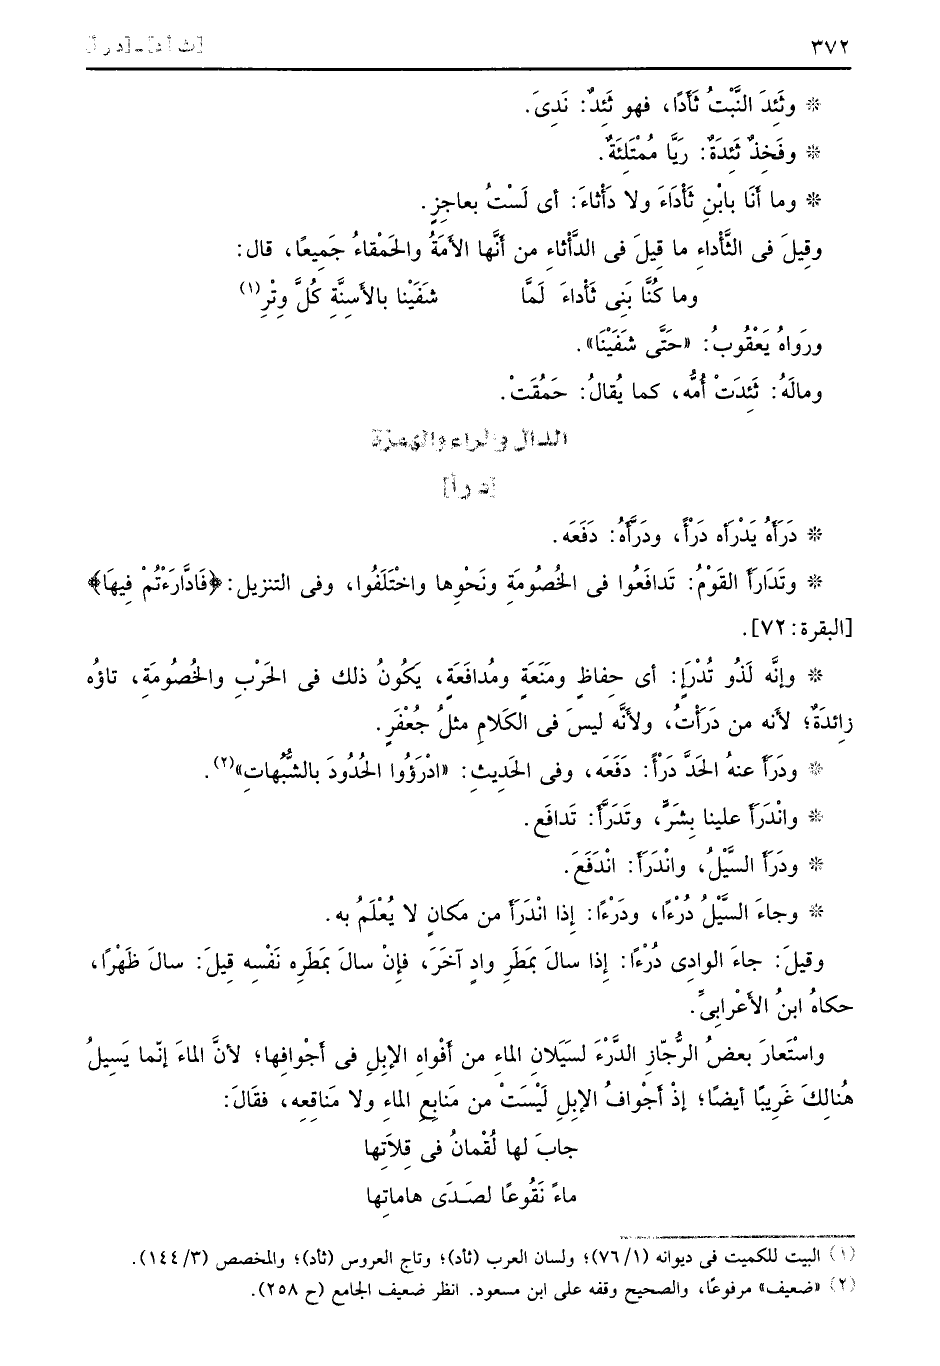 ٣٧٢
[ث أ د] ـ [د ر أ]
❊ وثَئِدَ النَّبْتُ ثَأَدًا، فهو ثَئِدٌ: نَدِىَ.
❊ وفَخِذٌ ثَئِدَةٌ: رَيَّا مُمْتَلِئَةٌ.
❊ وما أَنَا بِابْنِ ثَأْدَاءَ ولا دَأْثاءَ: أى لَسْتُ بعاجِزٍ.
وقِيلَ فى الثَّأْداءِ ما قِيلَ فى الدَّأْثاءِ من أَنَّها الأَمَةُ والحَمْقاءُ جَمِيعًا، قال:
وما كُنَّا بَنِى ثَأْداءَ لَمَّا شَفَيْنا بالأَسِنَّةِ كُلَّ وِتْرِ(١)
ورَواهُ يَعْقُوبُ: «حَتَّى شَفَيْنَا».
ومالَهُ: ثَئِدَتْ أُمُّه، كما يُقالُ: حَمُقَتْ.
الدال والراء والهمزة
[د ر أ]
❊ دَرَأَهُ يَدْرَأه دَرْأً، ودَرَّأَهُ: دَفَعَه.
❊ وتَدَارَأَ القَوْمُ: تَدافَعُوا فى الخُصُومَةِ ونَحْوِها واخْتَلَفُوا، وفى التنزيل: ﴿فَادَّارَءْتُمْ فِيهَا﴾
[البقرة: ٧٢].
❊ وإنَّه لَذُو تُدْرَإٍ: أى حِفاظٍ ومَنَعَةٍ ومُدافَعَةٍ، يَكُونُ ذلك فى الحَرْبِ والخُصُومَةِ، تاؤُه
زائدَةٌ؛ لأنه من دَرَأْتُ، ولأنَّه ليسَ فى الكَلامِ مثلُ جُعْفَرٍ.
❊ ودَرَأَ عنهُ الحَدَّ دَرْأً: دَفَعَه، وفى الحَدِيثِ: «ادْرَؤُوا الحُدُودَ بالشُّبُهاتِ»(٢).
❊ وانْدَرَأَ علينا بِشَرٍّ، وتَدَرَّأَ: تَدافَع.
❊ ودَرَأَ السَّيْلُ، وانْدَرَأَ: انْدَفَعَ.
❊ وجاءَ السَّيْلُ دُرْءًا، ودَرْءًا: إذا انْدَرَأَ من مَكانٍ لا يُعْلَمُ به.
وقيلَ: جاءَ الوادِى دُرْءًا: إذا سالَ بمَطَرِ وادٍ آخَرَ، فإنْ سالَ بمَطَرِه نَفْسِه قيلَ: سالَ ظَهْرًا،
حكاهُ ابنُ الأَعْرابِىِّ.
واسْتَعارَ بعضُ الرُّجَّازِ الدَّرْءَ لسَيَلانِ الماءِ من أَفْواهِ الإبلِ فى أَجْوافِها؛ لأنَّ الماءَ إنّما يَسِيلُ
هُنالِكَ غَرِيبًا أيضًا؛ إذْ أَجْوافُ الإبلِ لَيْسَتْ من مَنابِعِ الماءِ ولا مَناقِعِه، فقَالَ:
جابَ لها لُقْمانُ فى قِلاَتِها
ماءً نَقُوعًا لصَدَى هاماتِها
(١) البيت للكميت فى ديوانه (٧٦/١)؛ ولسان العرب (ثأد)؛ وتاج العروس (ثأد)؛ والمخصص (١٤٤/٣).
(٢) «ضعيف» مرفوعًا، والصحيح وقفه على ابن مسعود. انظر ضعيف الجامع (ح ٢٥٨).